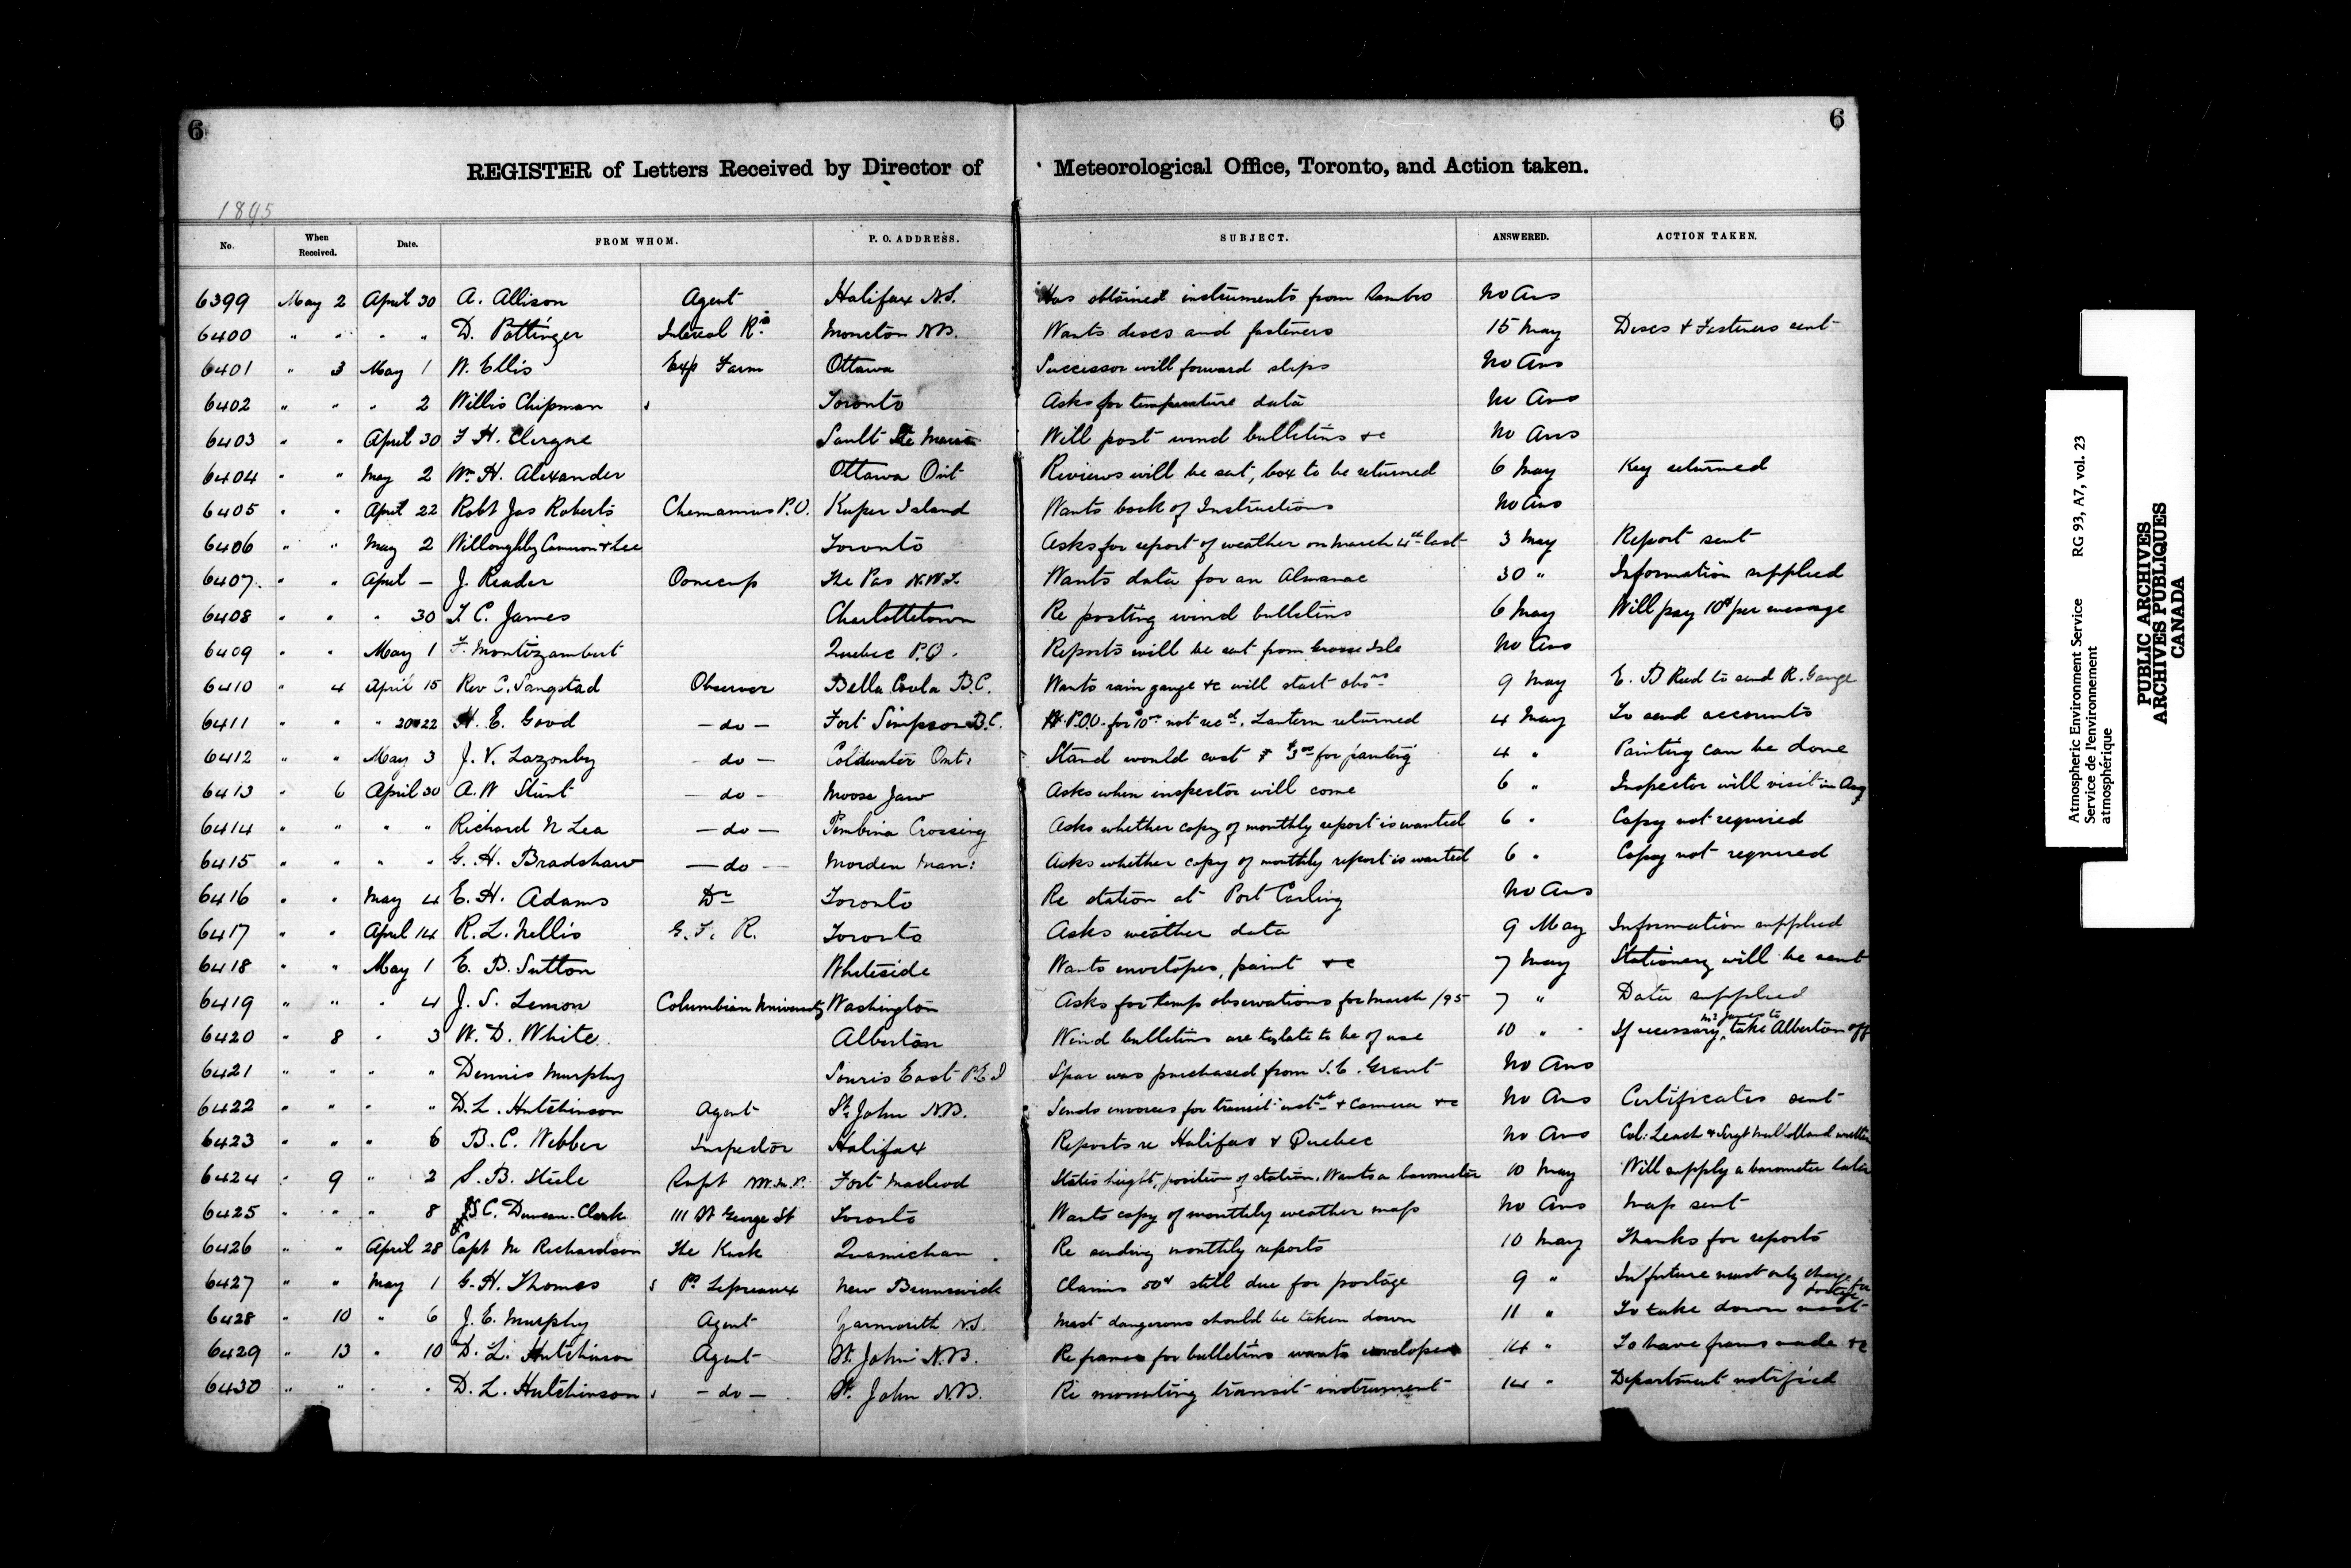 6 6
REGISTER of Letters Received by Director of Meteorological Office, Toronto, and Action taken.
1895
No. When Received. Date. FROM WHOM. P. O. ADDRESS. SUBJECT. ANSWERED. ACTION TAKEN.
6399 May 2 April 30 A. Allison Agent Halifax N.S. Has obtained instruments from Sambro No Ans
6400 " " " " D. Pottinger Moncton N.B. Wants discs and fasteners 15 May Discs & Fasteners sent
6401 " 3 May 1 W. Ellis Exp Farm Ottawa Successor will forward slips No Ans
6402 " " " 2 Willis Chipman Toronto Asks for temperature data No Ans
6403 " " April 30 F. H. Clergue Sault Ste Marie Will post wind bulletins &c No Ans
6404 " " May 2 Wm. H. Alexander Ottawa Ont Reviews will be sent, box to be returned 6 May Key returned
6405 " " April 22 Robt Jas Roberts Chemainus P.O. Kuper Island Wants book of Instructions No Ans
6406 " " May 2 Willoughby Cameron & Lee Toronto Asks for report of weather on March 4th last 3 May Report sent
6407 " " April — J. Reader Oonecup The Pas N.W.T. Wants data for an Almanac 30 " Information supplied
6408 " " " 30 T. C. James Charlottetown Re posting wind bulletins 6 May Will pay 10c per message
6409 " " May 1 F. Montizambert Quebec P.Q. Reports will be sent from Grosse Isle No Ans
6410 " 4 April 15 Rev C. Sangstad Observer Bella Coola B.C. Wants rain gauge &c will start obsns 9 May E. B Reed to send R. Gauge
6411 " " " 20 & 22 H. E. Good — do — Fort Simpson B.C. P.O.O. for $10.00 not recd. Lantern returned 4 May To send accounts
6412 " " May 3 J. V. Lazonby — do — Coldwater Ont. Stand would cost $3.00 for painting 4 " Painting can be done
6413 " 6 April 30 A. W Stunt — do — Moose Jaw Asks when inspector will come 6 " Inspector will visit in Aug
6414 " " " " Richard N Lea — do — Pembina Crossing Asks whether copy of monthly report is wanted 6 " Copy not required
6415 " " " " G. H. Bradshaw — do — Morden Man: Asks whether copy of monthly report is wanted 6 " Copy not required
6416 " " May 4 E. H. Adams Dr Toronto Re station at Port Carling No Ans
6417 " " April 14 R. L. Nellis G. T. R. Toronto Asks weather data 9 May Information supplied
6418 " " May 1 E. B. Sutton Whiteside Wants envelopes, paint &c 7 May Stationery will be sent
6419 " " " 4 J. S. Lemon Columbian University Washington Asks for temp observations for March /95 7 " Data supplied
6420 " 8 " 3 W. D. White Alberton Wind bulletins are too late to be of use 10 " If necessary, Mr James to take Alberton off
6421 " " " " Dennis Murphy Souris East P.E.I Spar was purchased from S. C. Grant No Ans
6422 " " " " D. L. Hutchinson Agent St. John N.B. Sends invoices for transit instt & Camera &c No Ans Certificates sent
6423 " " " 6 B. C. Webber Inspector Halifax Reports re Halifax & Quebec No Ans Col: Leach & Sergt Mulholland written
6424 " 9 " 2 S. B. Steele Supt N.W.M.P. Fort Macleod States height, position of station. Wants a barometer 10 May Will supply a barometer later
6425 " " " 8 C. Duncan-Clark 111 St George St Toronto Wants copy of monthly weather map No Ans Map sent
6426 " " April 28 Capt M Richardson The Kirk Quamichan Re sending monthly reports 10 May Thanks for reports
6427 " " May 1 G. H. Thomas Pt. Lepreaux New Brunswick Claims 50c still due for postage 9 " In future must only charge for postage
6428 " 10 " 6 J. E. Murphy Agent Yarmouth N.S. Mast dangerous should be taken down 11 " To take down mast
6429 " 13 " 10 D. L. Hutchinson Agent St. John N.B. Re frames for bulletins wants envelopes 14 " To have frames made &c
6430 " " " " D. L. Hutchinson — do — St. John N.B. Re mounting transit instrument 14 " Department notified
Atmospheric Environment Service RG 93, A7, vol. 23
Service de l'environnement
atmosphérique
PUBLIC ARCHIVES
ARCHIVES PUBLIQUES
CANADA